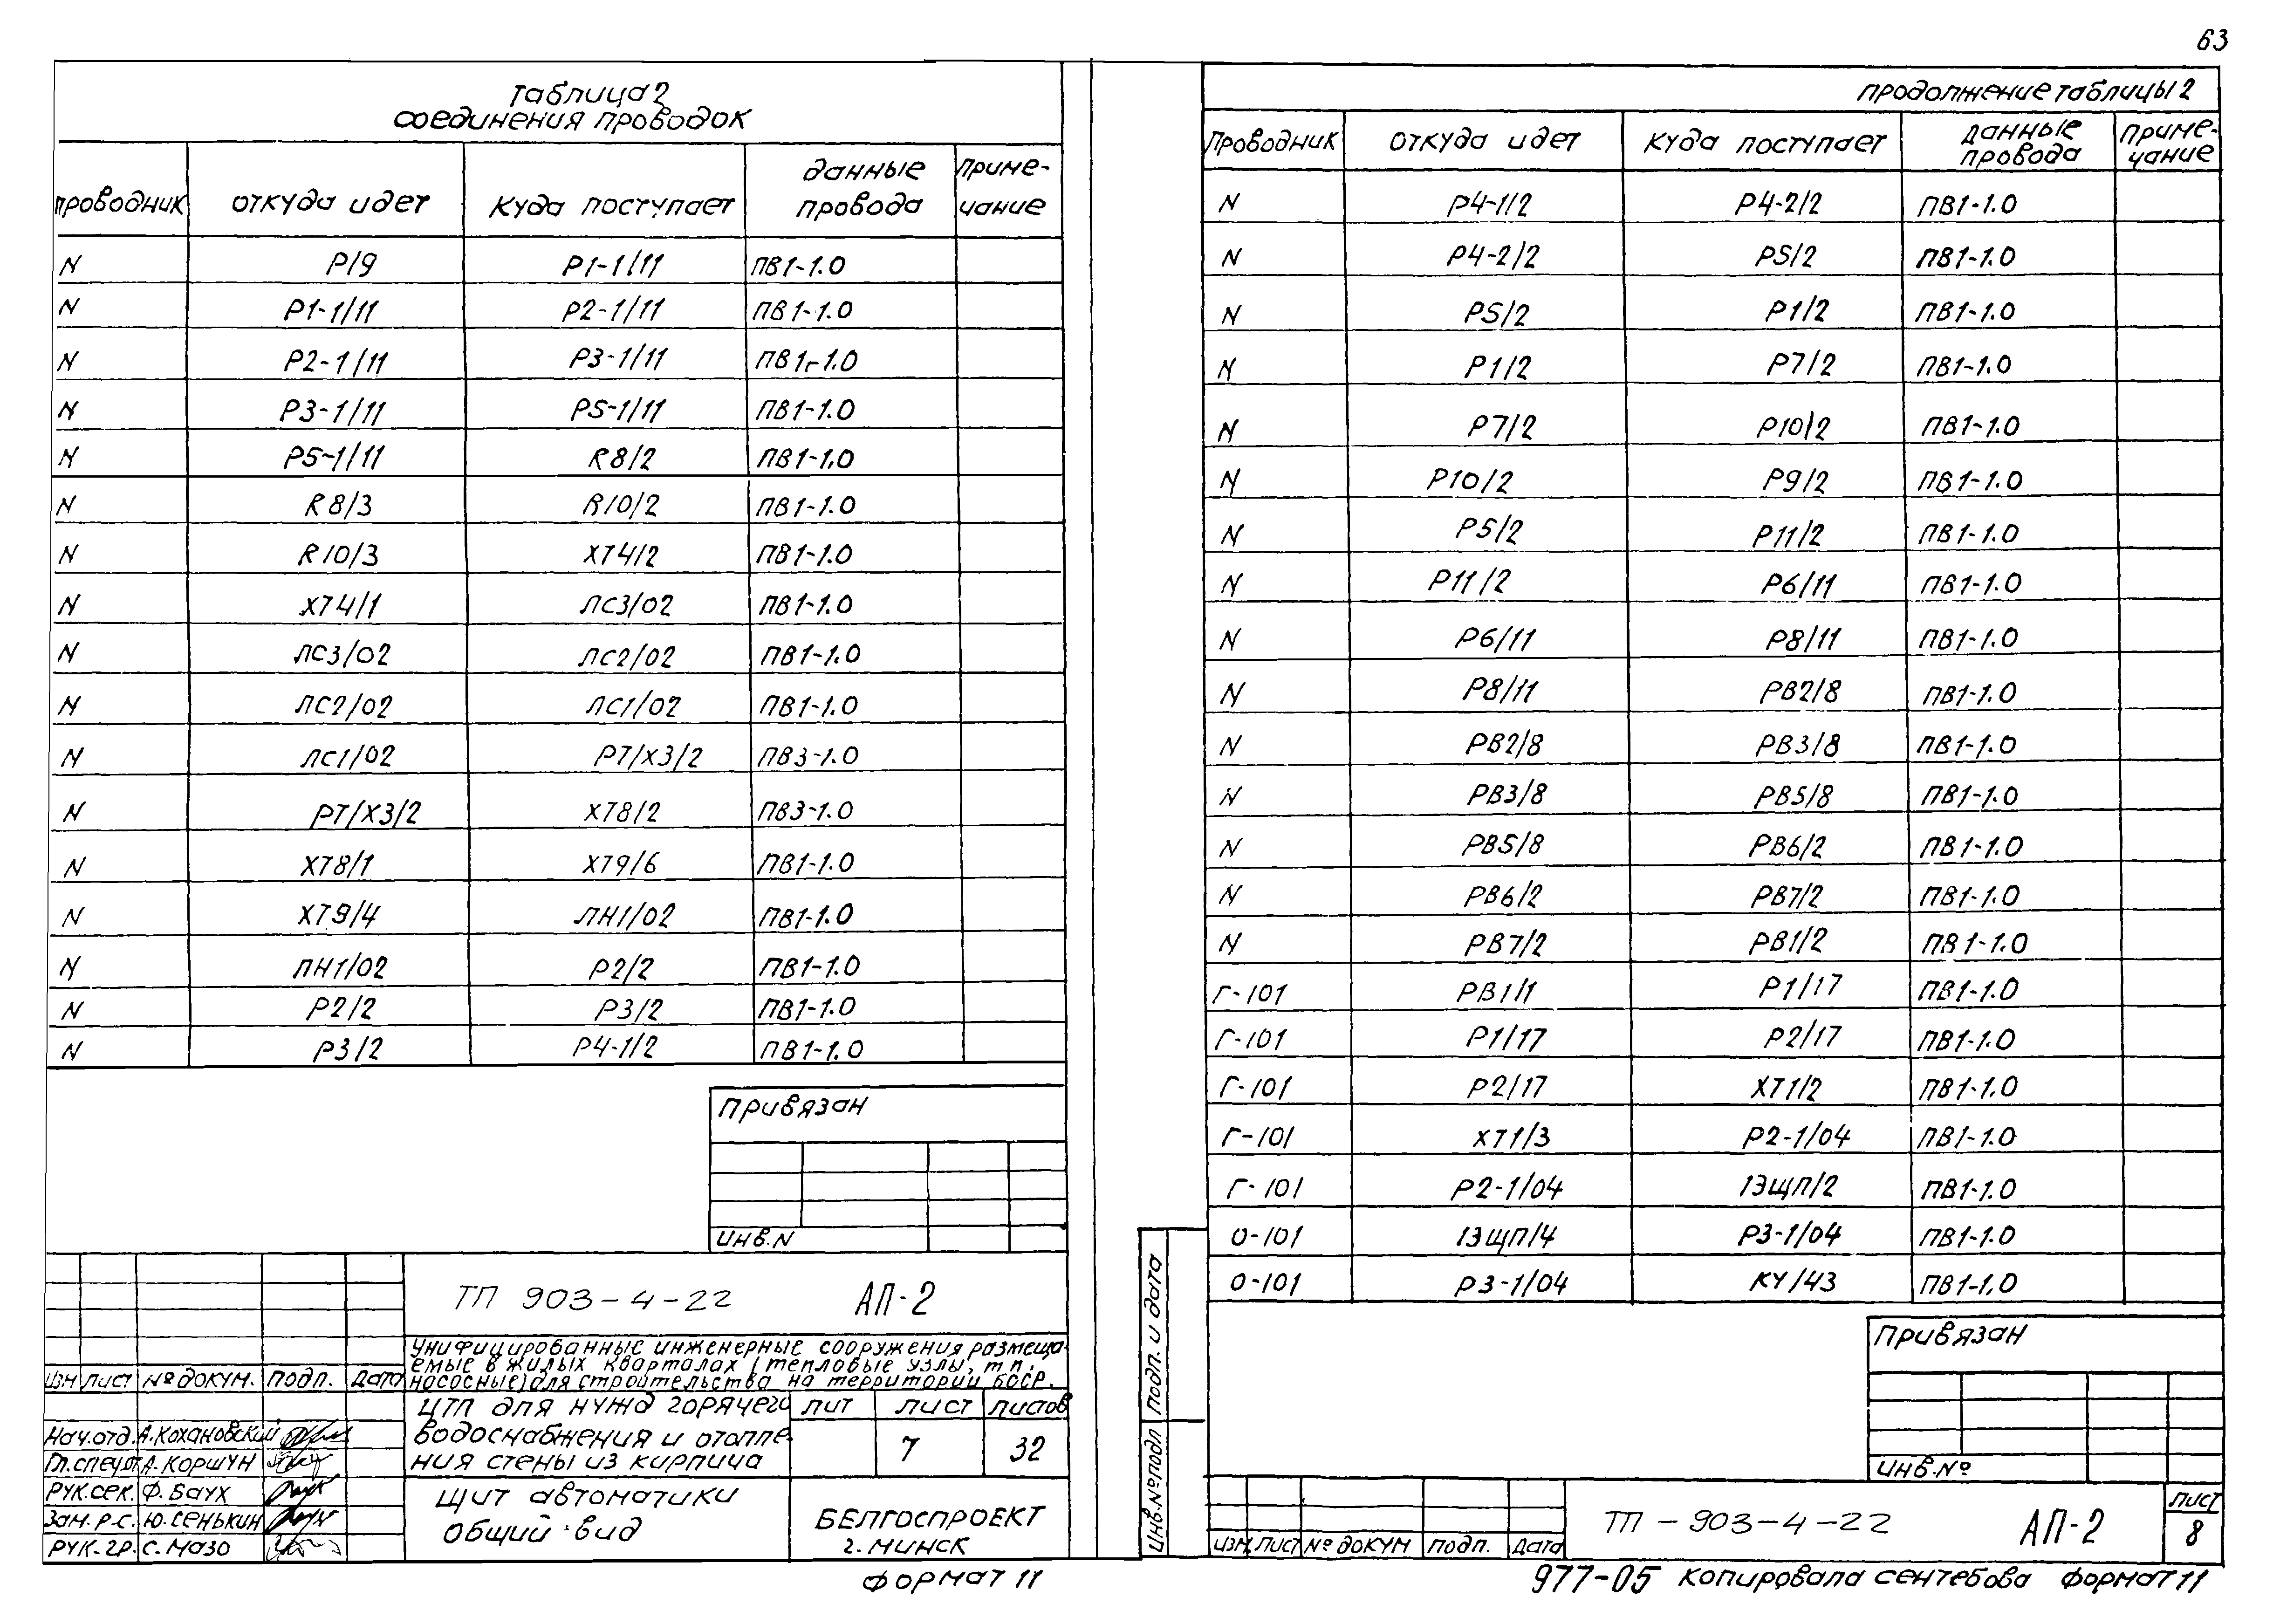 63
Таблица 2
соединения проводок
проводник откуда идет куда поступает данные провода приме-чание
N Р/9 Р1-1/11 ПВ1-1.0
N Р1-1/11 Р2-1/11 ПВ1-1.0
N Р2-1/11 Р3-1/11 ПВ1-1.0
N Р3-1/11 Р5-1/11 ПВ1-1.0
N Р5-1/11 R8/2 ПВ1-1.0
N R8/3 R10/2 ПВ1-1.0
N R10/3 ХТ4/2 ПВ1-1.0
N ХТ4/1 ЛС3/02 ПВ1-1.0
N ЛС3/02 ЛС2/02 ПВ1-1.0
N ЛС2/02 ЛС1/02 ПВ1-1.0
N ЛС1/02 РТ/Х3/2 ПВ3-1.0
N РТ/Х3/2 ХТ8/2 ПВ3-1.0
N ХТ8/1 ХТ9/6 ПВ1-1.0
N ХТ9/4 ЛН1/02 ПВ1-1.0
N ЛН1/02 Р2/2 ПВ1-1.0
N Р2/2 Р3/2 ПВ1-1.0
N Р3/2 Р4-1/2 ПВ1-1.0
Привязан
Инв.N
ТП 903-4-22 АП-2
Унифицированные инженерные сооружения размеща-
емые в жилых кварталах (тепловые узлы, т.п.
насосные) для строительства на территории БССР.
Изм Лист № докум. Подп. Дата
ЦТП для нужд горячего
водоснабжения и отопле-
ния стены из кирпича
Лит Лист Листов
7 32
Нач.отд. А.Кохановский
Гл.спец.от А.Коршун
Рук.сек. Ф.Баух
Зам.р.с. Ю.Сенькин
Рук.гр. С.Мазо
Щит автоматики
Общий вид
БЕЛГОСПРОЕКТ
г. Минск
Формат 11
Продолжение таблицы 2
Проводник откуда идет куда поступает данные провода приме-чание
N Р4-1/2 Р4-2/2 ПВ1-1.0
N Р4-2/2 Р5/2 ПВ1-1.0
N Р5/2 Р1/2 ПВ1-1.0
N Р1/2 Р7/2 ПВ1-1.0
N Р7/2 Р10/2 ПВ1-1.0
N Р10/2 Р9/2 ПВ1-1.0
N Р5/2 Р11/2 ПВ1-1.0
N Р11/2 Р6/11 ПВ1-1.0
N Р6/11 Р8/11 ПВ1-1.0
N Р8/11 РВ2/8 ПВ1-1.0
N РВ2/8 РВ3/8 ПВ1-1.0
N РВ3/8 РВ5/8 ПВ1-1.0
N РВ5/8 РВ6/2 ПВ1-1.0
N РВ6/2 РВ7/2 ПВ1-1.0
N РВ7/2 РВ1/2 ПВ1-1.0
Г-101 РВ1/1 Р1/17 ПВ1-1.0
Г-101 Р1/17 Р2/17 ПВ1-1.0
Г-101 Р2/17 ХТ1/2 ПВ1-1.0
Г-101 ХТ1/3 Р2-1/04 ПВ1-1.0
Г-101 Р2-1/04 1ЭЩП/2 ПВ1-1.0
О-101 1ЭЩП/4 Р3-1/04 ПВ1-1.0
О-101 Р3-1/04 КУ/43 ПВ1-1.0
Привязан
Инв.№
Подп. и дата
Инв.№ подл
Изм. Лист № докум Подп. Дата
ТП-903-4-22 АП-2
Лист
8
977-05 Копировала Сентебова Формат 11